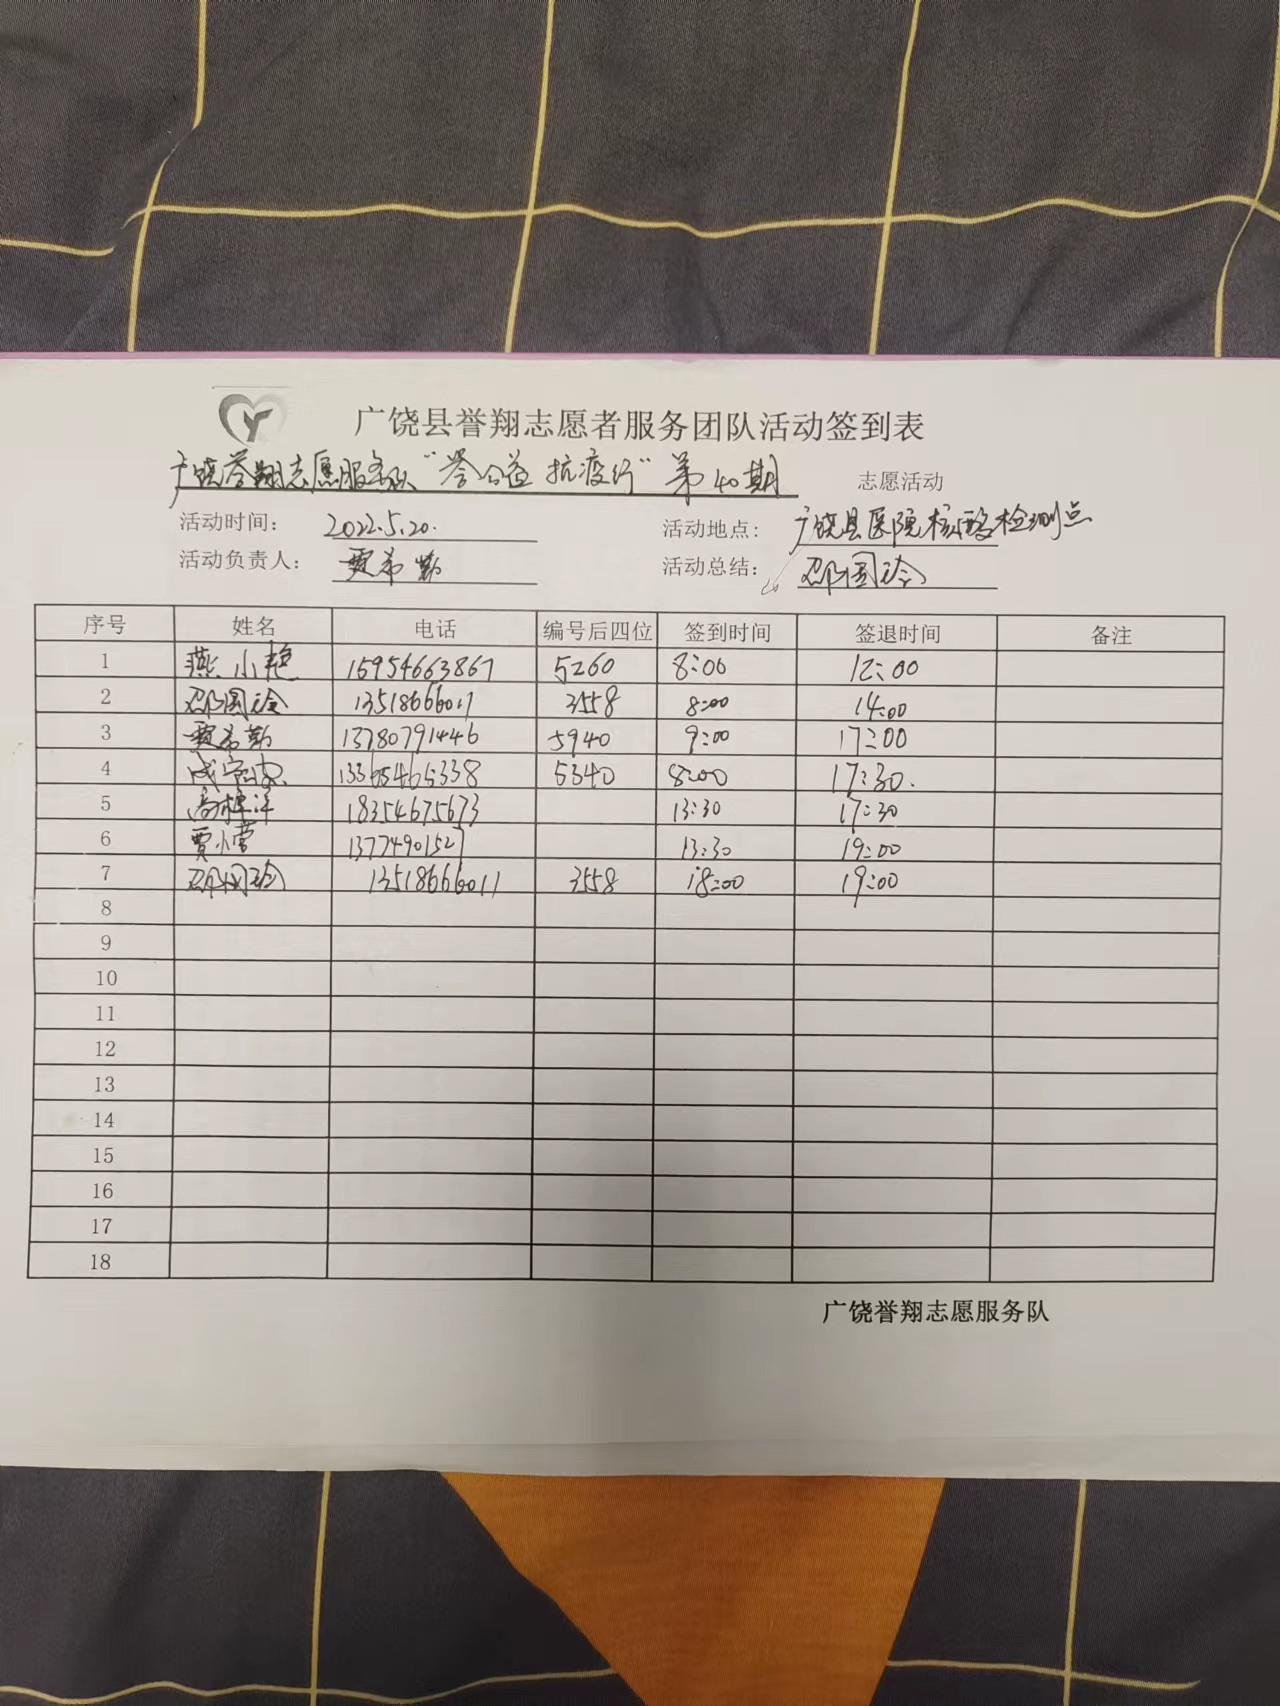 广饶县誉翔志愿者服务团队活动签到表
广饶誉翔志愿服务队“誉公益 抗疫行”第40期 志愿活动
活动时间: 2022.5.20. 活动地点: 广饶县医院核酸检测点
活动负责人: 贾希勤 活动总结: 邵国玲
序号 姓名 电话 编号后四位 签到时间 签退时间 备注
1 燕小艳 15954663867 5260 8:00 12:00
2 邵国玲 13518666011 3558 8:00 14:00
3 贾希勤 13780791446 5940 9:00 17:00
4 13365465338 5340 8:00 17:30.
5 18354675673 13:30 17:30
6 贾小营 13774901527 13:30 19:00
7 邵国玲 13518666011 3558 18:00 19:00
8
9
10
11
12
13
14
15
16
17
18
广饶誉翔志愿服务队